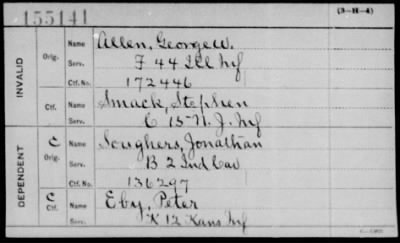 155141
(3-H-4)
INVALID
Orig. Name Allen, George W.
Serv. F 44 Ill Inf
Ctf. No. 172446
Ctf. Name Smack, Stephen
Serv. C 15 N. J. Inf
DEPENDENT
C Orig. Name Soughers, Jonathan
Serv. B 2 Ind Cav
Ctf. No. 136297
C Ctf. Name Eby, Peter
Serv. K 12 Kans Inf